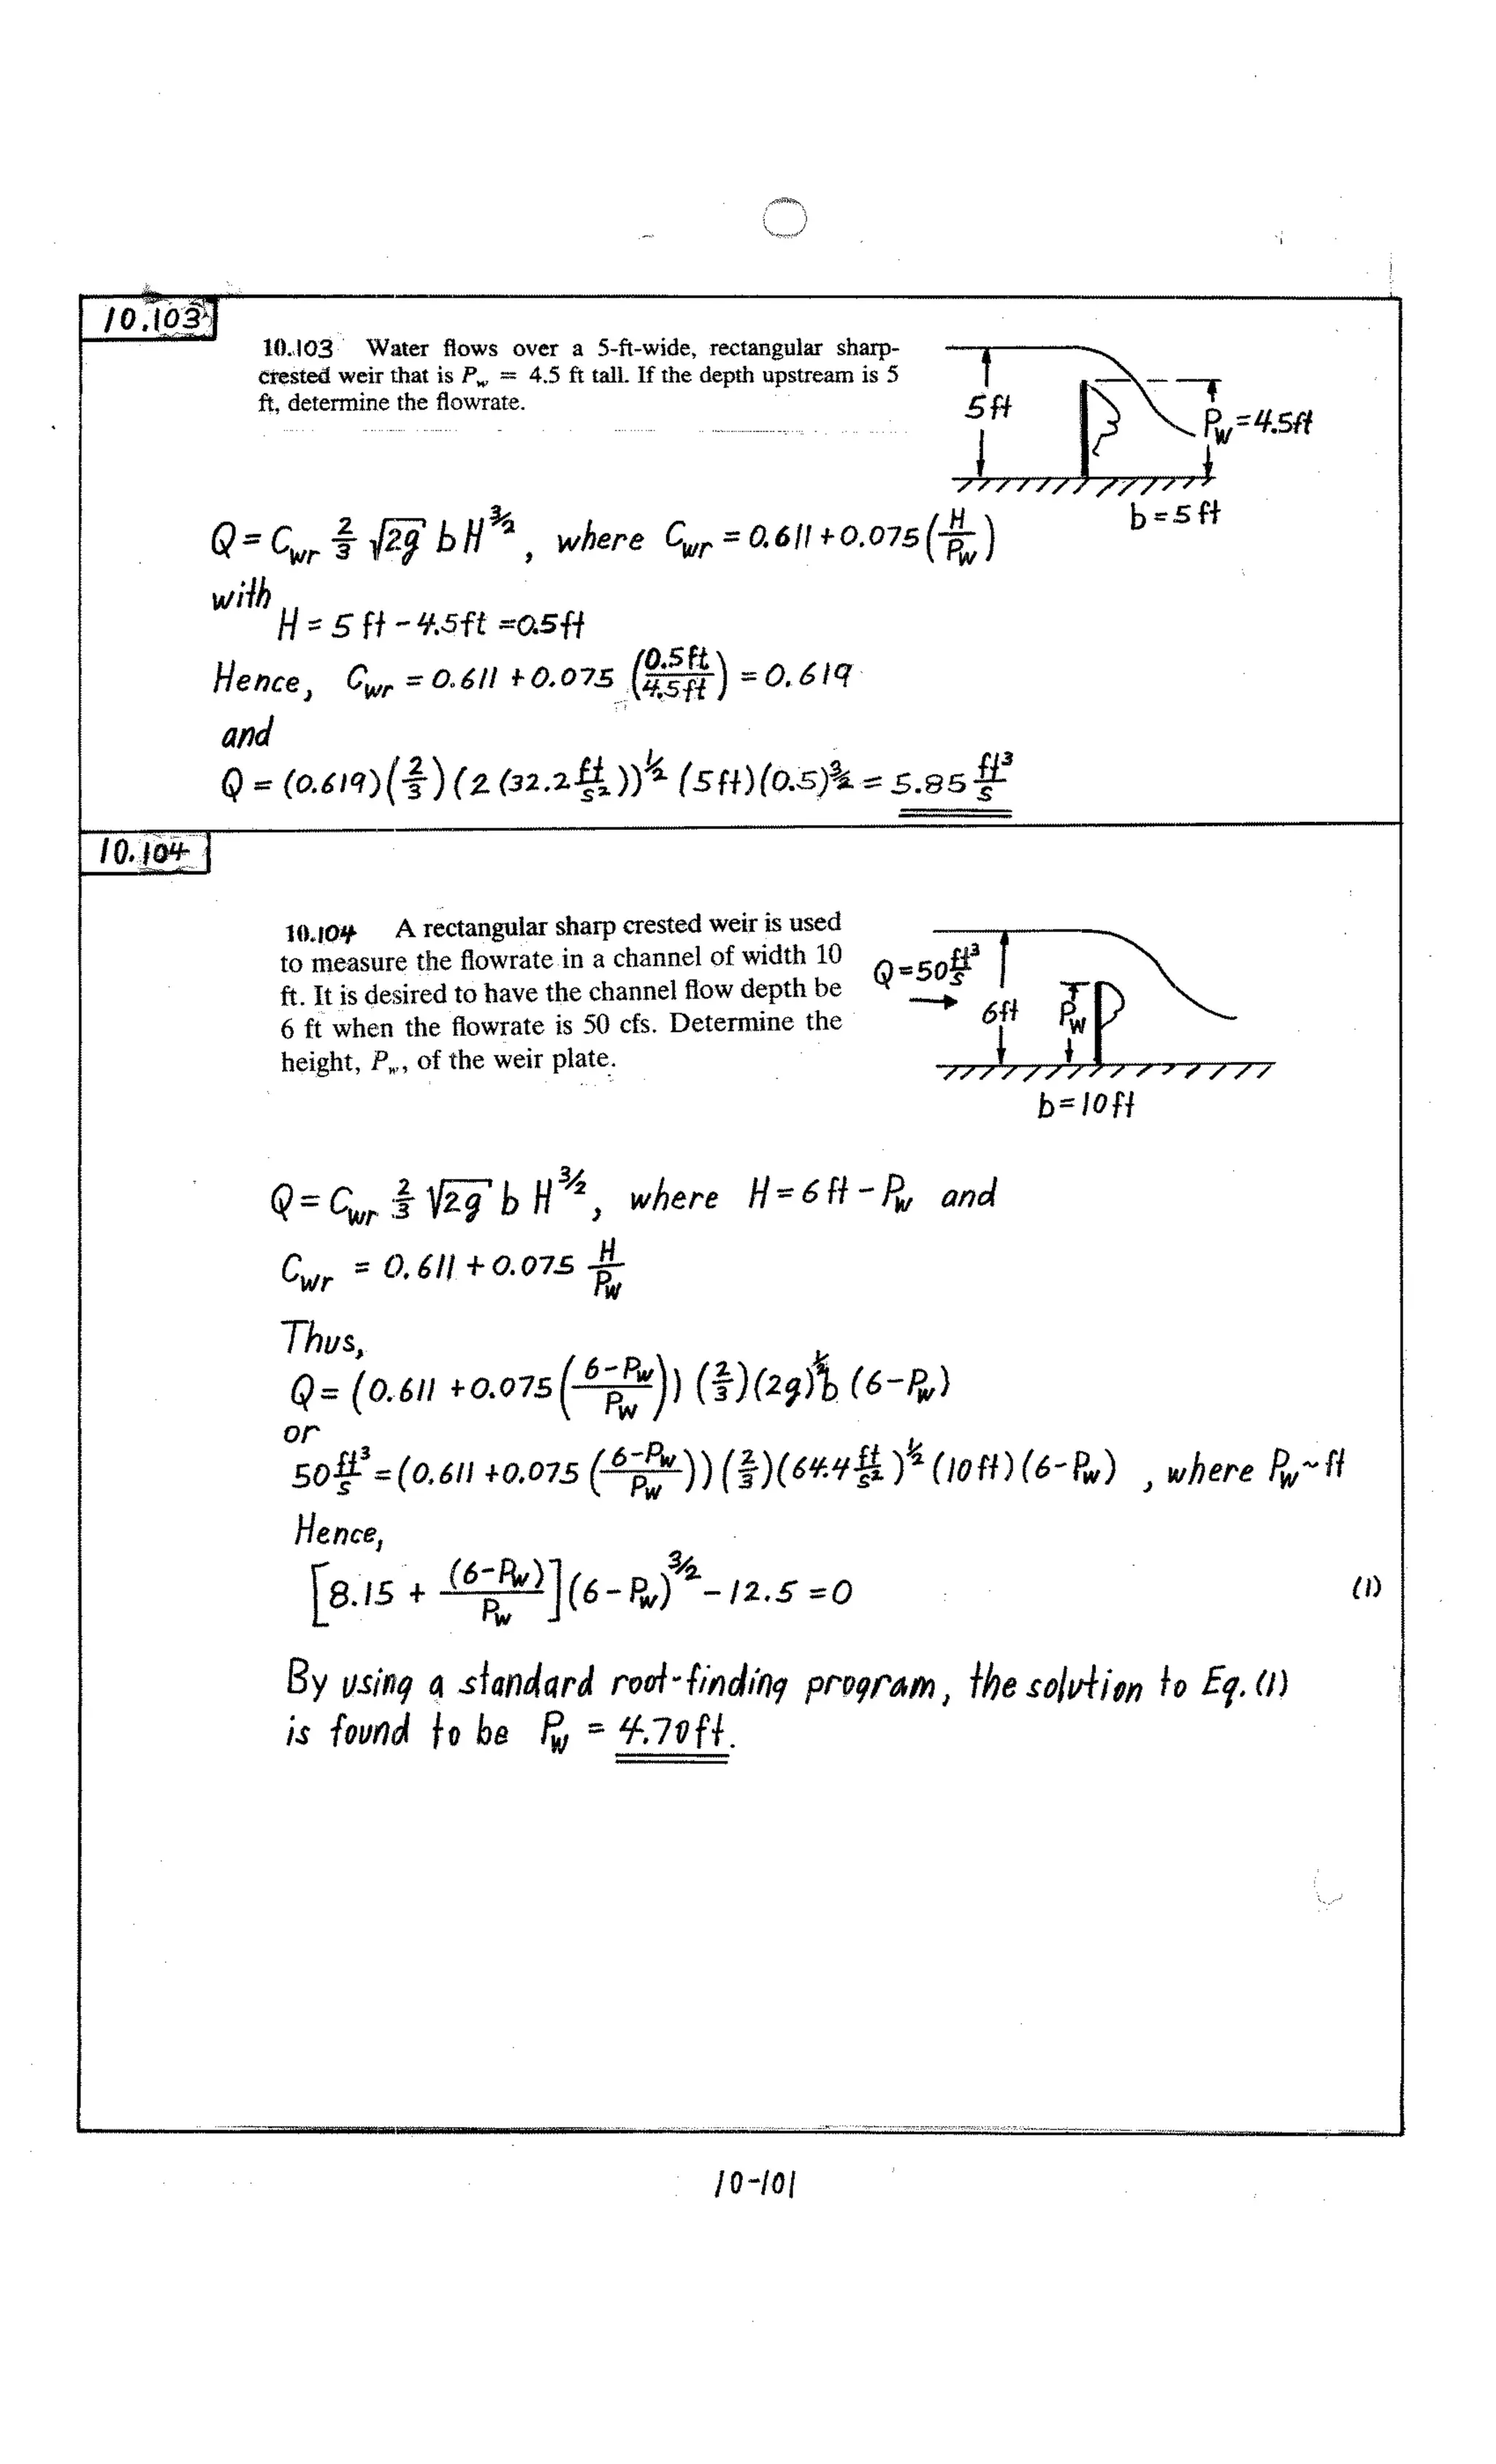 10.103
10.103 Water flows over a 5-ft-wide, rectangular sharp-
crested weir that is P_w = 4.5 ft tall. If the depth upstream is 5
ft, determine the flowrate.
5 ft
P_w = 4.5ft
b = 5 ft
Q = C_wr 2/3 √2g b H^3/2 , where C_wr = 0.611 + 0.075 (H/P_w)
with
H = 5 ft - 4.5ft = 0.5ft
Hence, C_wr = 0.611 + 0.075 (0.5ft/4.5ft) = 0.619
and
Q = (0.619)(2/3)(2 (32.2 ft/s²))^1/2 (5ft)(0.5)^3/2 = 5.85 ft³/s
10.104
10.104 A rectangular sharp crested weir is used
to measure the flowrate in a channel of width 10
ft. It is desired to have the channel flow depth be
6 ft when the flowrate is 50 cfs. Determine the
height, P_w, of the weir plate.
Q = 50 ft³/s
6ft
P_w
b = 10 ft
Q = C_wr 2/3 √2g b H^3/2 , where H = 6 ft - P_w and
C_wr = 0.611 + 0.075 H/P_w
Thus,
Q = (0.611 + 0.075 ((6-P_w)/P_w)) (2/3)(2g)^1/2 b (6-P_w)
or
50 ft³/s = (0.611 + 0.075 ((6-P_w)/P_w)) (2/3)(64.4 ft/s²)^1/2 (10 ft)(6-P_w) , where P_w ~ ft
Hence,
[8.15 + (6-P_w)/P_w](6-P_w)^3/2 - 12.5 = 0 (1)
By using a standard root-finding program, the solution to Eq. (1)
is found to be P_w = 4.70 ft.
10-101